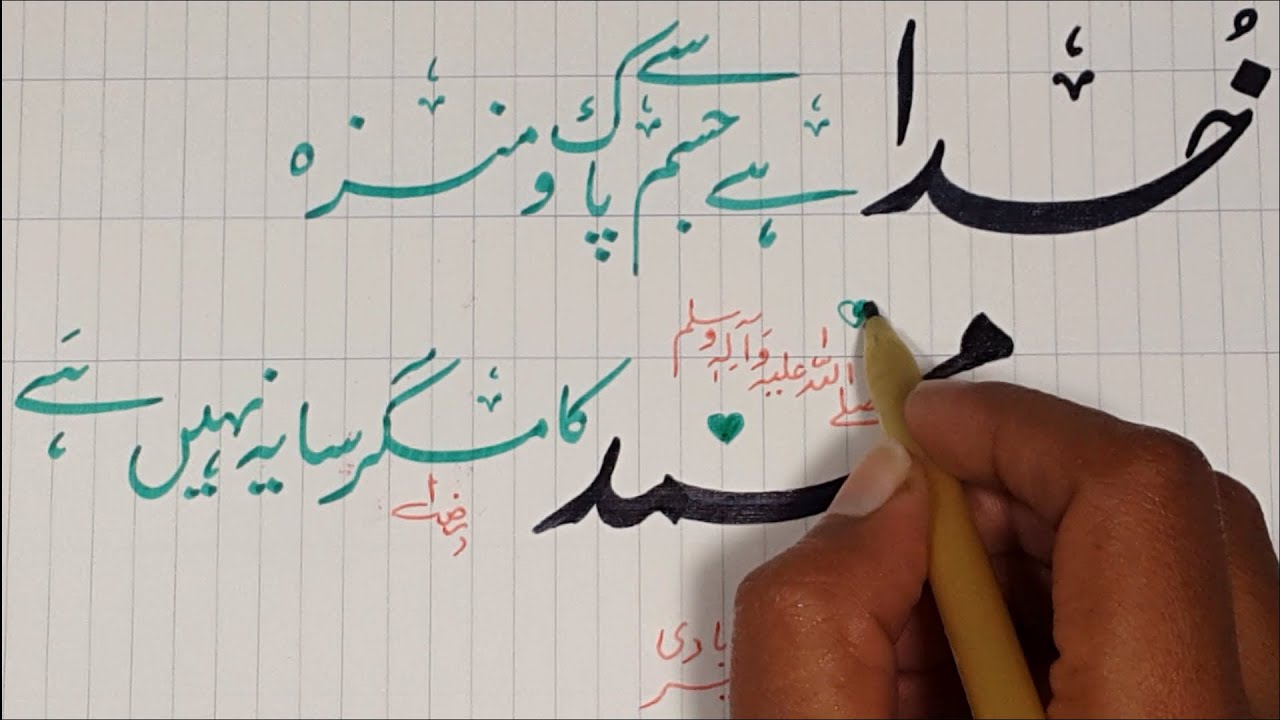 خُدا ہے جسم سے پاک و منزہ
محمد صلے اللہ علیہ وَآلِہٖ وسلم کا مگر سایہ نہیں ہَے
بادی